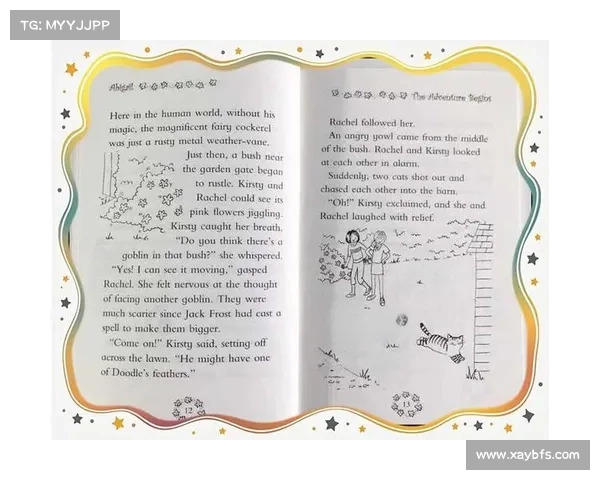 TG: MYYJJPP
Abigail
Here in the human world, without his
magic, the magnificent fairy cockerel
was just a rusty metal weather-vane.
Just then, a bush near
the garden gate began
to rustle. Kirsty and
Rachel could see its
pink flowers jiggling.
Kirsty caught her breath.
"Do you think there's a
goblin in that bush?" she whispered.
"Yes! I can see it moving," gasped
Rachel. She felt nervous at the thought
of facing another goblin. They were
much scarier since Jack Frost had cast a
spell to make them bigger.
"Come on!" Kirsty said, setting off
across the lawn. "He might have one
of Doodle's feathers."
12
The Adventure Begins
Rachel followed her.
An angry yowl came from the middle
of the bush. Rachel and Kirsty looked
at each other in alarm.
Suddenly, two cats shot out and
chased each other into the barn.
"Oh!" Kirsty exclaimed, and she and
Rachel laughed with relief.
13
www.xaybfs.com